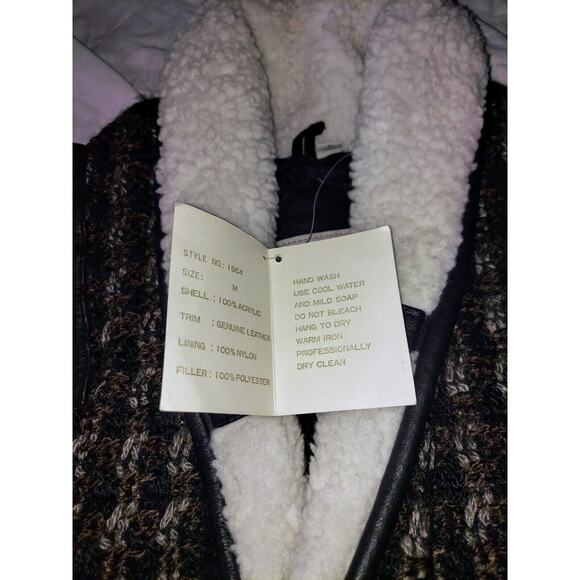 STYLE NO.: 1964
SIZE: M
SHELL : 100% ACRYLIC
TRIM : GENUINE LEATHER
LINING : 100% NYLON
FILLER : 100% POLYESTER
HAND WASH
USE COOL WATER
AND MILD SOAP
DO NOT BLEACH
HANG TO DRY
WARM IRON
PROFESSIONALLY
DRY CLEAN